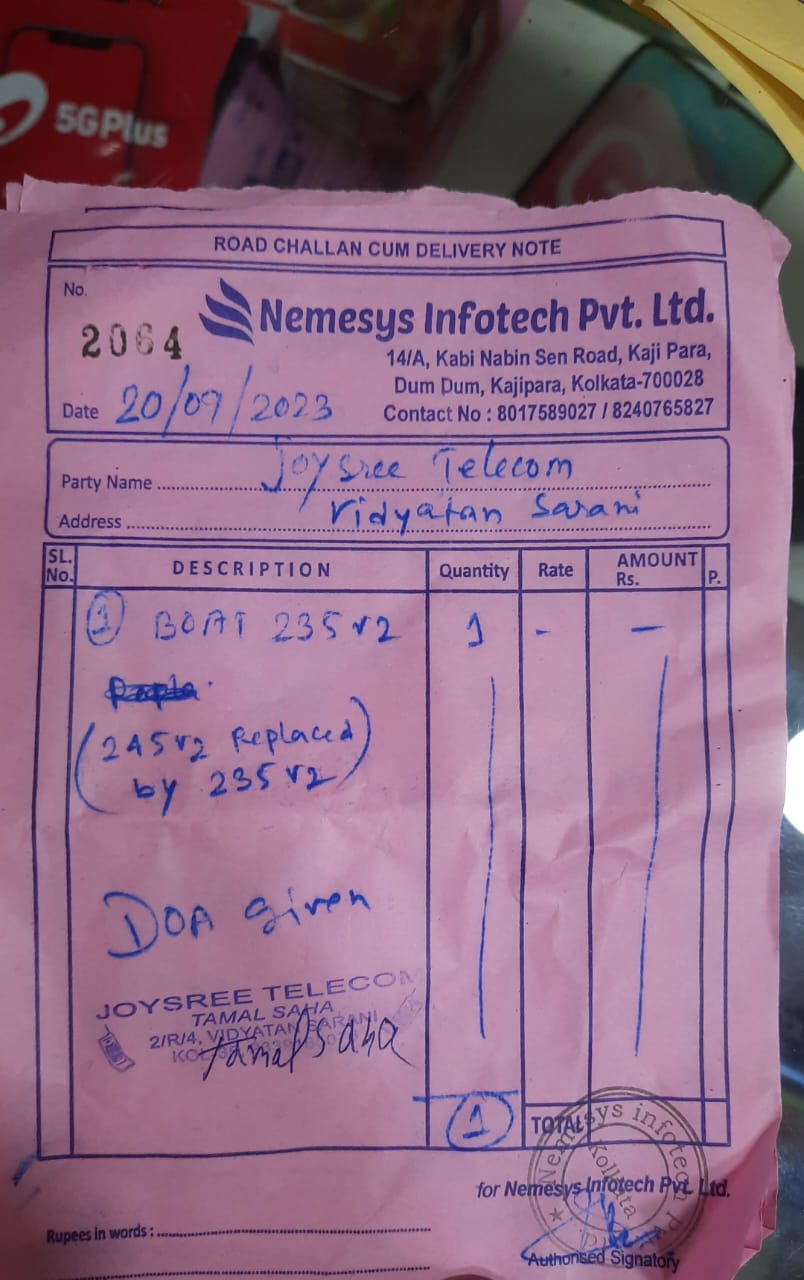 5GPlus
ROAD CHALLAN CUM DELIVERY NOTE
No.
2064
Nemesys Infotech Pvt. Ltd.
14/A, Kabi Nabin Sen Road, Kaji Para,
Dum Dum, Kajipara, Kolkata-700028
Contact No : 8017589027 / 8240765827
Date 20/09/2023
Party Name Joysree Telecom
Address Vidyatan Sarani
SL. No. DESCRIPTION Quantity Rate AMOUNT Rs. P.
1 BOAT 235 v2 1 - -
(245 v2 Replaced
by 235 v2)
DOA given
JOYSREE TELECOM
TAMAL SAHA
2/R/4, VIDYATAN SARANI
Tamal Saha
1 TOTAL
Nemesys infotech
Kolkata
for Nemesys Infotech Pvt. Ltd.
Rupees in words :
Authorised Signatory